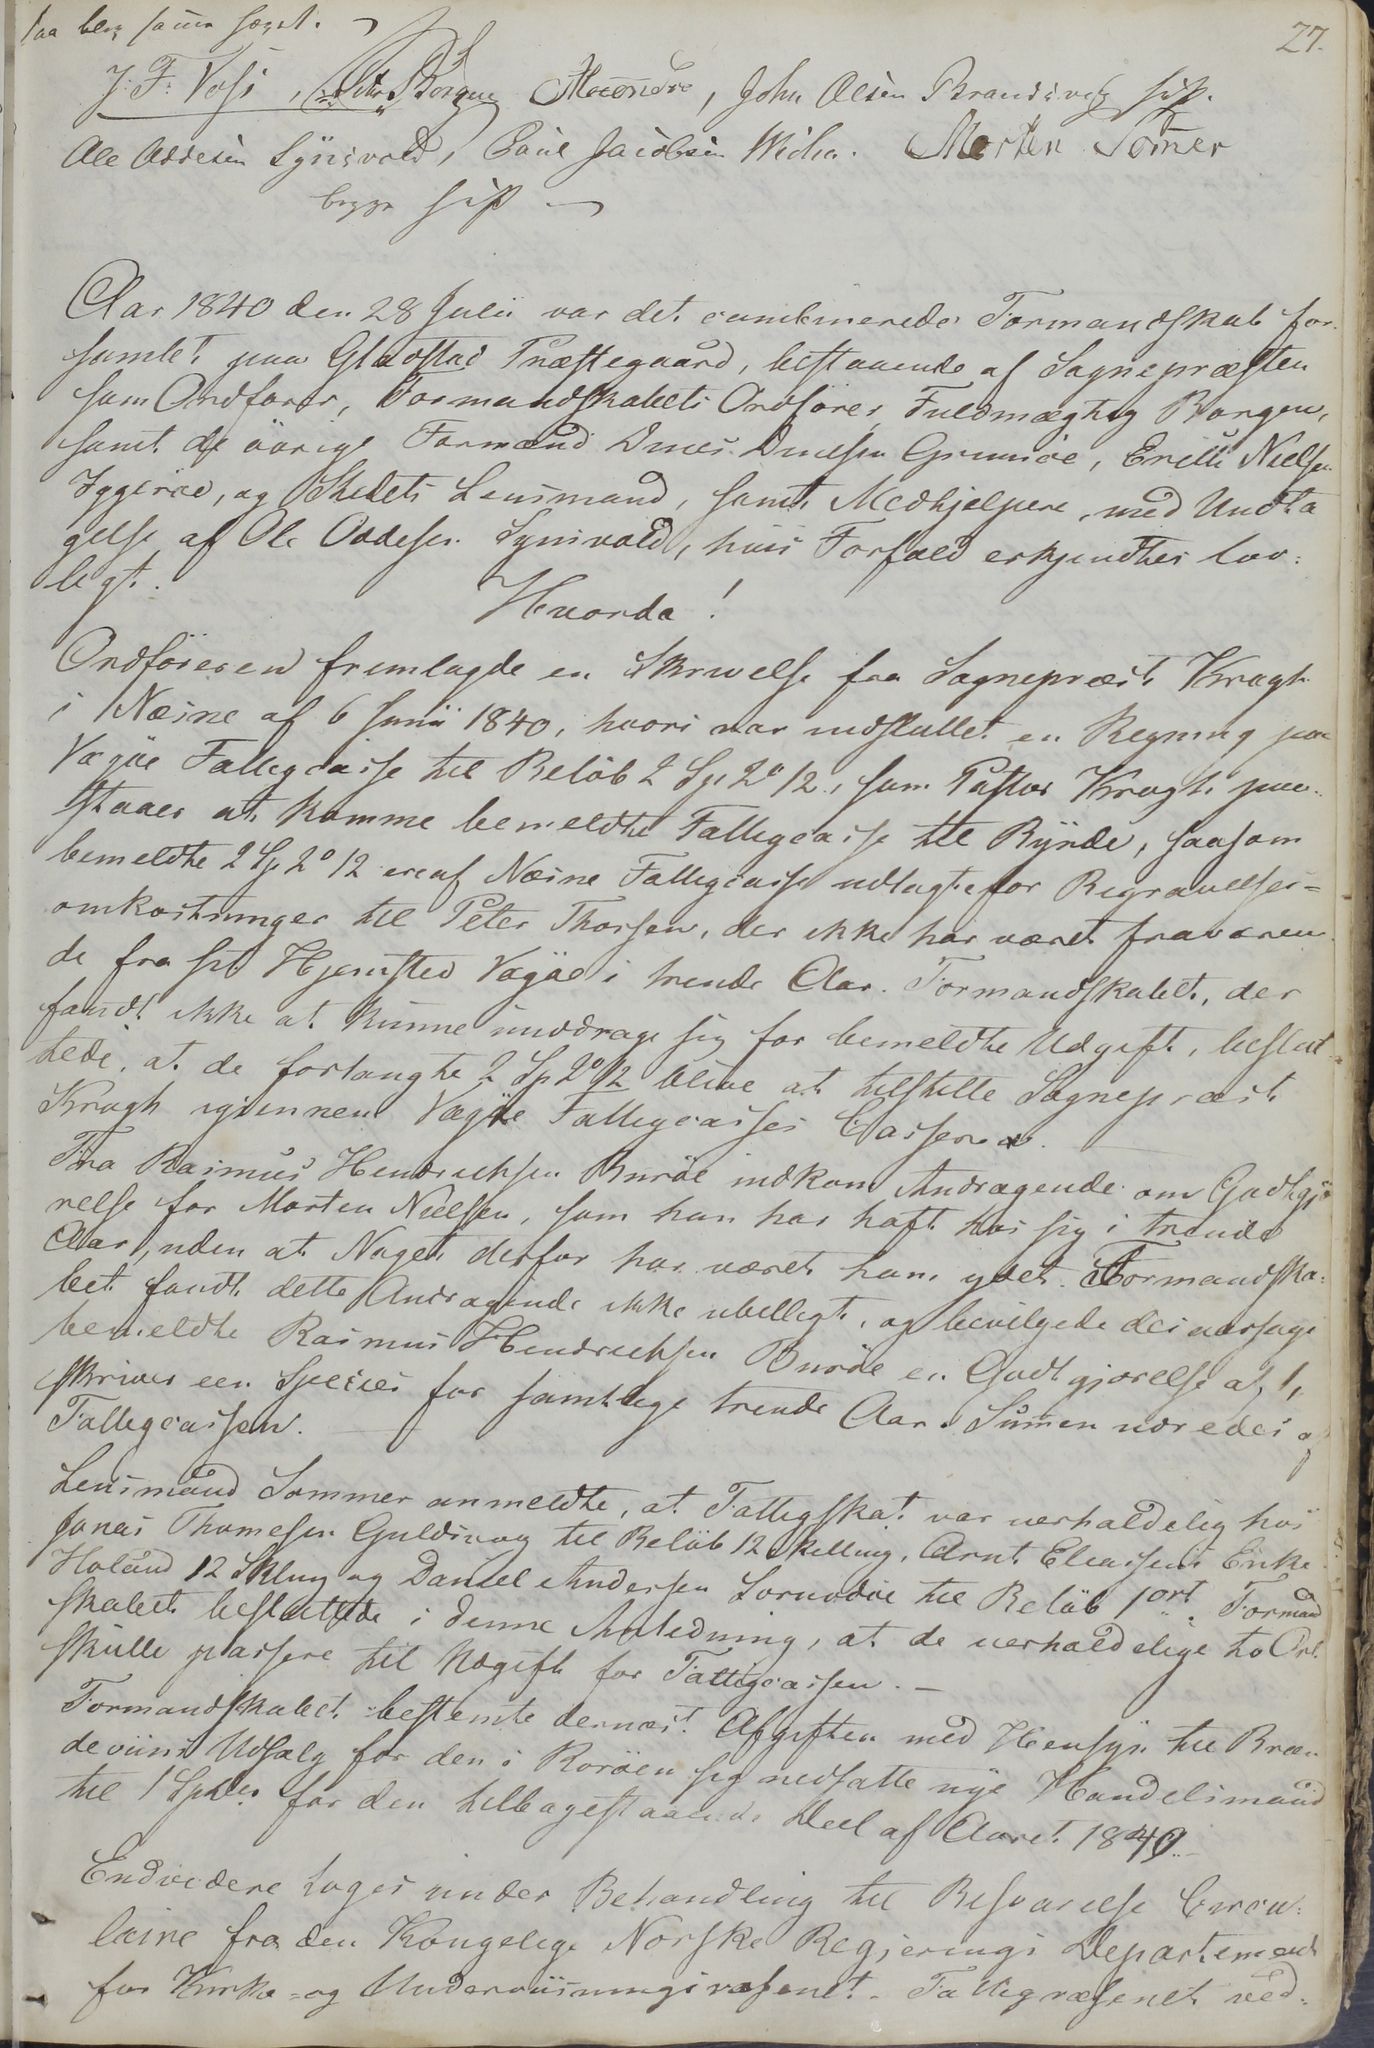 27.
saa blev samme hævet.
J. F. Voss, P. Borgen, John Olsen Brandsvog hiß.
Ole Oddesen Synsvold, Paul Jacobsen Morten Sommer
begge hiß
Aar 1840 den 28 Julii var det combinerede Formandskab for-
samlet paa Gladstad Præstegaard, bestaaende af Sognepræsten
som Ordfører, Formandskabets Ordfører, Fuldmægtig Borgen,
samt de øvrige Formænd Dines Dinesen Grunnöe, Erich Nielsen
Iggeröe, og Stedets Lensmand, samt Medhjelpere, med Undta
gelse af Ole Oddesen Synsvold, hvis Forfald erkjendtes lov-
ligt.
Hvorda!
Ordføreren fremlagde en Skrivelse fra Sognepræst Kragh
i Næsne af 6 Junii 1840, hvori var indsluttet en Regning paa
Vægöe Fattigcasse til Beløb 2 Sp 2° 12, som Pastor Kragh paa-
staaer at komme bemeldte Fattigcasse til Byrde, saasom
bemeldte 2 Sp 2° 12 ere af Næsne Fattigcasse udlagte for Begravelses-
omkostninger til Peter Thorsen, der ikke har været fraværen
de fra sit Hjemsted Vægöe i trende Aar. Formandskabet, der
fandt ikke at kunne unddrage sig for bemeldte Udgift, beslut-
tede, at de forlangte 2 Sp 2° 12 blive at tilstille Sognepræst
Kragh igjennem Vægöe Fattigcasses Casserer.
Fra Rasmus Hendrichsen Buröe indkom Andragende om Godtgjø
relse for Morten Nielsen, som han har haft hos sig i trende
Aar, uden at Noget derfor har været ham ydet. Formandska-
bet fandt dette Andragende ikke ubilligt, og bevilgede desaarsage
bemeldte Rasmus Hendrichsen Buröe en Godtgjørelse af 1,
skriver een Species for samtlige trende Aar. Summen udredes af
Fattigcassen.
Lensmand Sommer anmeldte, at Fattigskat var uerholdelig hos
Jonas Thomesen Guldsvog til Beløb 12 Skilling, Arnt Eliassens Enke
Holand 12 Skling og Daniel Andersen Sornödöe til Beløb 1 ort. Formand
skabet besluttede i denne Anledning, at de uerholdelige to Ort
skulle passere til Udgift for Fattigcassen. –
Formandskabet bestemte dernæst Afgiften med Hensyn til Bræn
deviins Udsalg for den i Roröen sig nedsatte nye Handelsmand
til 1 Spdlr for den tilbagestaaende Deel af Aaret 1840.
Endvidere toges under Behandling til Besvarelse Circu-
laire fra den Kongelige Norske Regjerings Departement
for Kirke- og Underviisningsvæsenet. Fattigvæsenet ved-